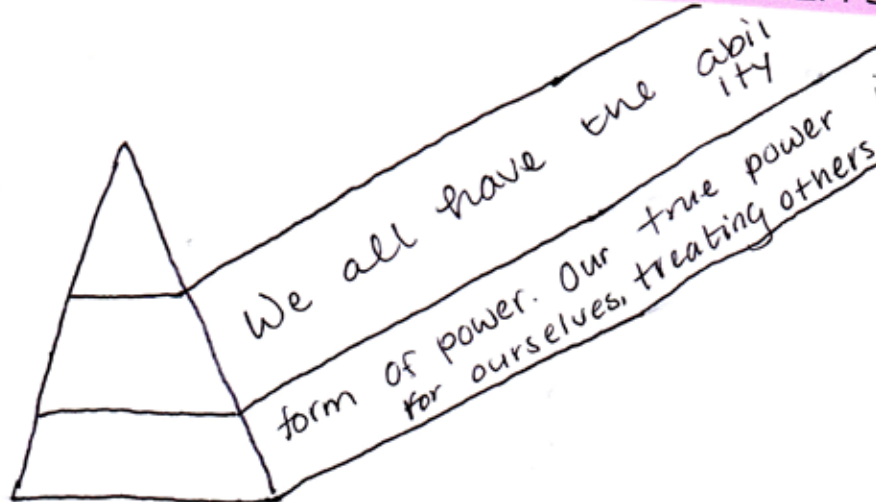 We all have the abil
ity
form of power. Our true power
for ourselves, treating others